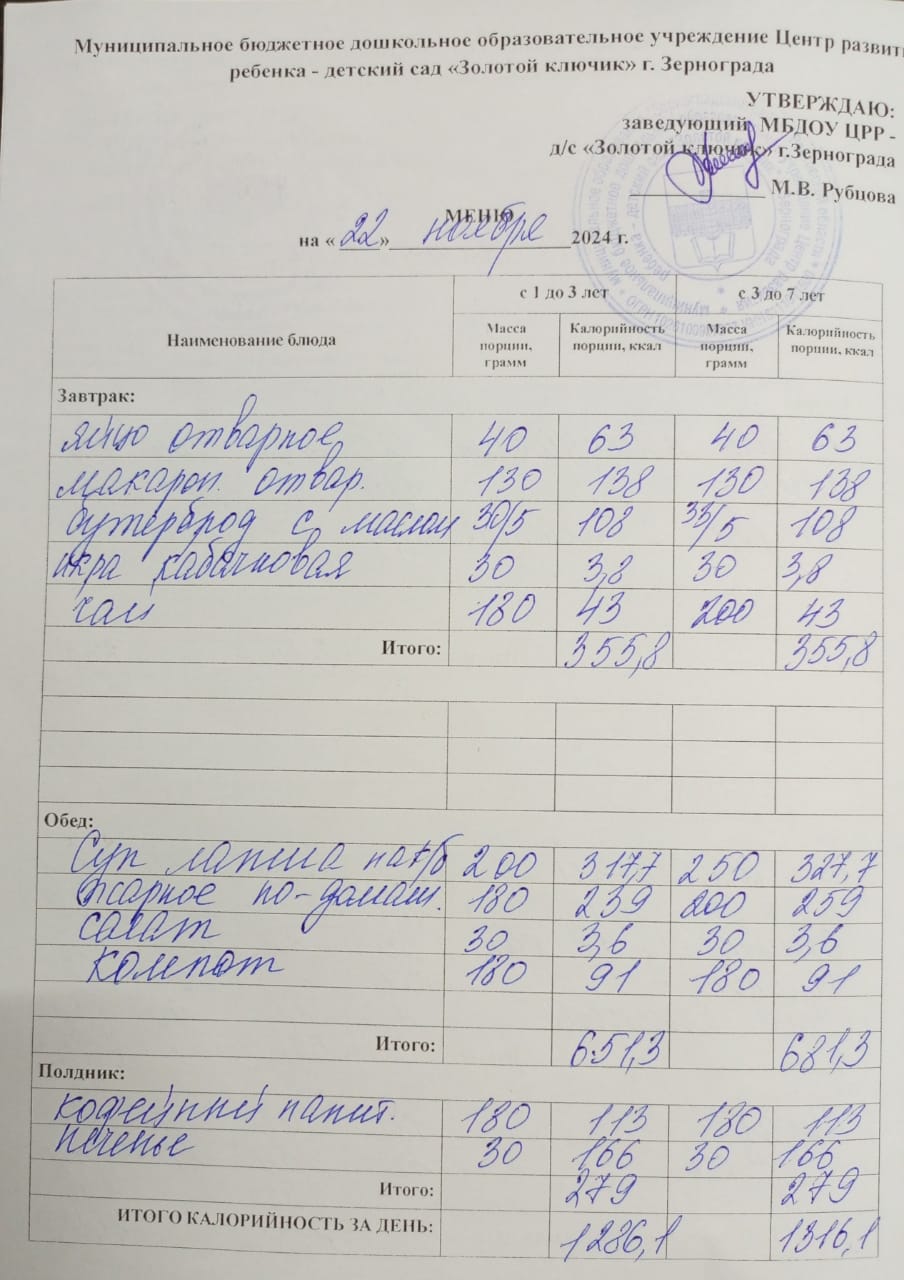 Муниципальное бюджетное дошкольное образовательное учреждение Центр развити
ребенка - детский сад «Золотой ключик» г. Зернограда
УТВЕРЖДАЮ:
заведующий МБДОУ ЦРР -
д/с «Золотой ключик» г.Зернограда
М.В. Рубцова
МЕНЮ
на «22» ноября 2024 г.
Наименование блюда с 1 до 3 лет с 3 до 7 лет
Масса порции, грамм Калорийность порции, ккал Масса порции, грамм Калорийность порции, ккал
Завтрак:
яйцо отварное 40 63 40 63
макарон. отвар. 130 138 130 138
бутерброд с маслом 30/5 108 33/5 108
икра кабачковая 30 3,8 30 3,8
чай 180 43 200 43
Итого: 355,8 355,8
Обед:
Суп лапша на к/б 200 317,7 250 327,7
Жаркое по-домаш. 180 239 200 259
салат 30 3,6 30 3,6
компот 180 91 180 91
Итого: 651,3 681,3
Полдник:
кофейный напит. 180 113 180 113
печенье 30 166 30 166
Итого: 279 279
ИТОГО КАЛОРИЙНОСТЬ ЗА ДЕНЬ: 1286,1 1316,1